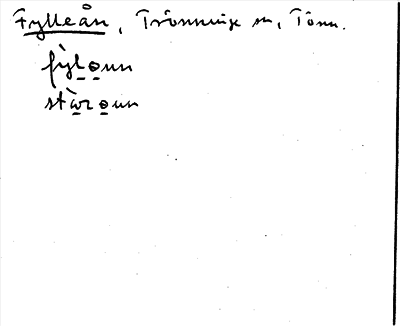 Fylleån, Trönninge sn, Tönn.
fỳl̠ə̠nn
stὼr̠ə̠nn